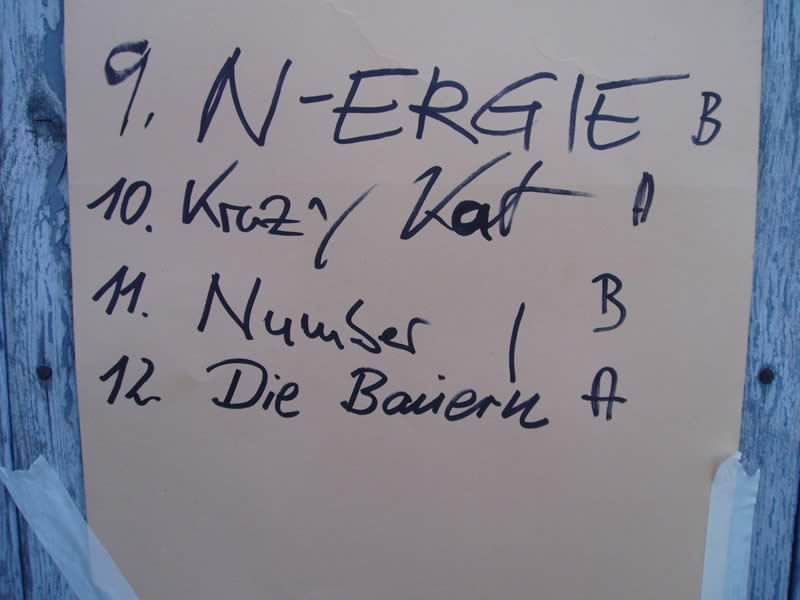 9. N-ERGIE B
10. Krazy Kat A
11. Number 1 B
12. Die Bauern A